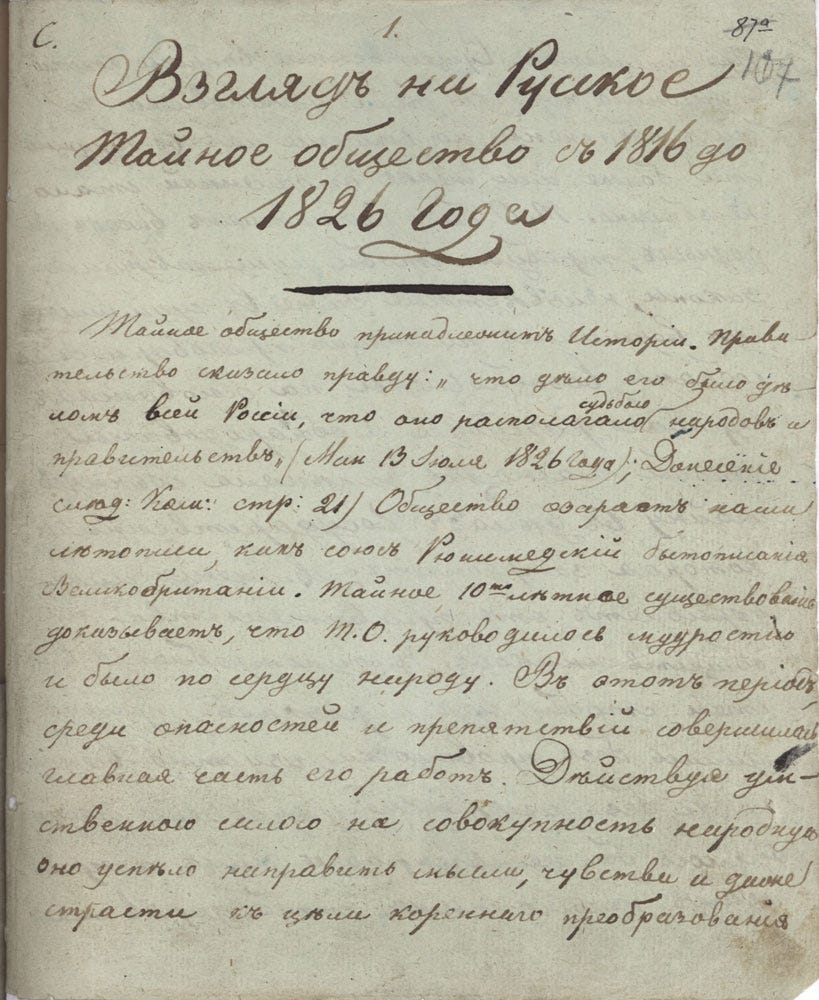 С.
1.
87а
107
Взглядъ на Руское
Тайное общество съ 1816 до
1826 года
Тайное общество принадлежитъ Исторіи. Прави-
тельство сказало правду: „что дѣло его было дѣ-
ломъ всей Россіи, что оно располагало судьбою народовъ и
правительствъ„ (Ман 13 Іюля 1826 года); Донесеніе
слѣд: Ком: стр: 21) Общество озаряетъ наши
лѣтописи, какъ союзъ Рюнимедскій бытописанія
Великобританіи. Тайное 10ти лѣтное существованіе
доказываетъ, что Т.О. руководилось мудростію
и было по сердцу народу. Въ этотъ періодъ,
среди опасностей и препятствій совершилась
главная часть его работъ. Дѣйствуя ум-
ственною силою на совокупность народную
оно успѣло направить мысли, чувства и даже
страсти къ цѣли кореннаго преобразованія